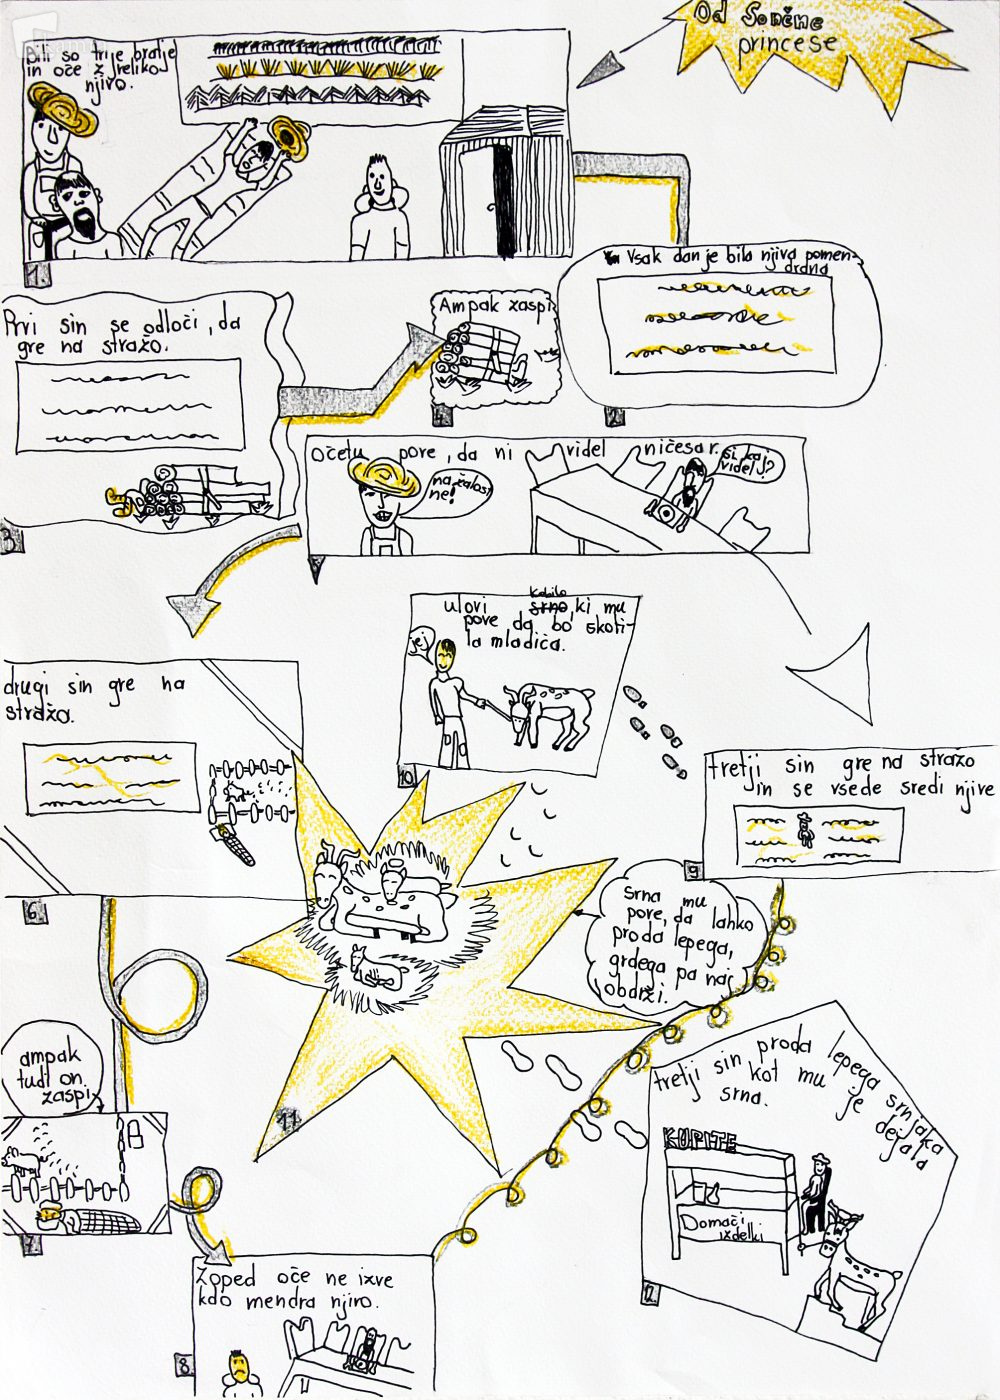 Od Sončne
princese
Bili so trije bratje
in oče z veliko
njivo.
1.
Vsak dan je bila njiva pomen-
drana
2.
Prvi sin se odloči, da
gre na stražo.
3
Ampak zaspi
4.
očetu pove, da ni videl ničesar.
na žalost
ne!
si kaj
videl?
drugi sin gre na
stražo.
6.
ampak
tudi on
zaspi
7.
Zoped oče ne izve
kdo mendra njivo.
8.
tretji sin gre na stražo
in se vsede sredi njive
9
ulovi srno, ki mu
kobilo
pove da bo skoti-
la mladiča.
jej
10
srna mu
pove, da lahko
proda lepega,
grdega pa naj
obdrži.
11
tretji sin proda lepega srnjaka
kot mu je dejala
srna.
KUPITE
Domači
izdelki
12.